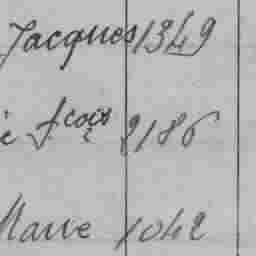 Jacques 1349
e fcois 2186
Marie 1042